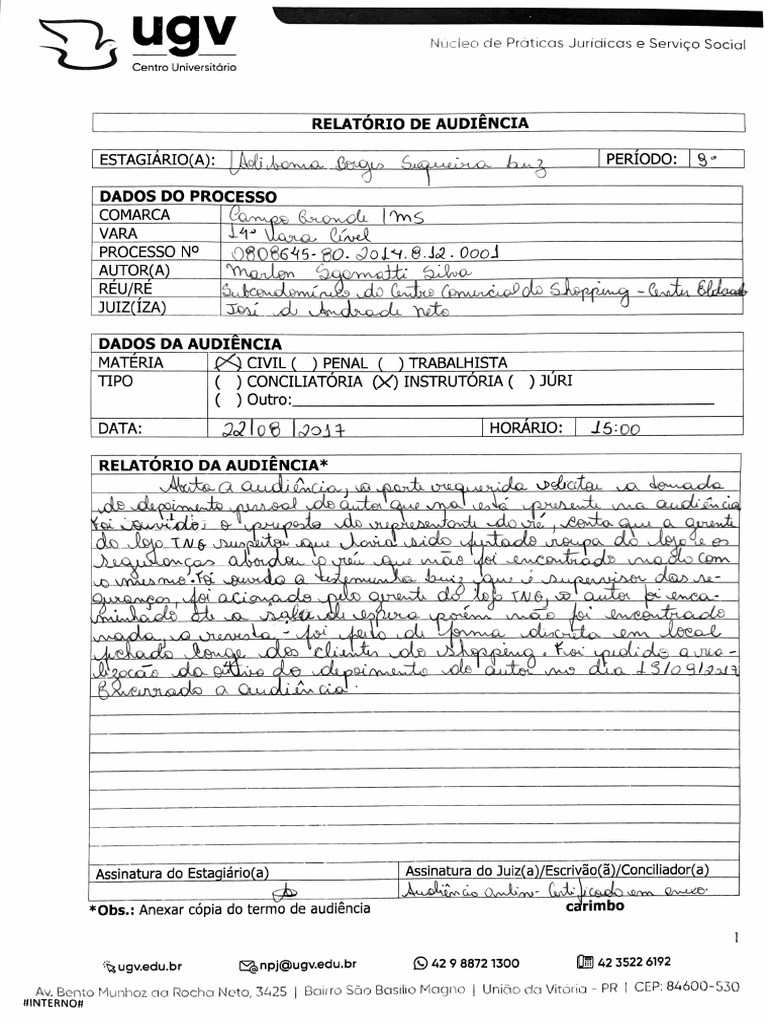 ugv
Centro Universitário
Núcleo de Práticas Jurídicas e Serviço Social
RELATÓRIO DE AUDIÊNCIA
ESTAGIÁRIO(A): Borges Siqueira Luiz PERÍODO: 8º
DADOS DO PROCESSO
COMARCA Campo Grande / MS
VARA 14º Vara Cível
PROCESSO Nº 0808645-80.2014.8.12.0001
AUTOR(A) Marlon Sgamatti Silva
RÉU/RÉ Subcondomínico do Centro Comercial do Shopping - Center Eldorado
JUIZ(ÍZA) José d Andrade Neto
DADOS DA AUDIÊNCIA
MATÉRIA (X) CIVIL ( ) PENAL ( ) TRABALHISTA
TIPO ( ) CONCILIATÓRIA (X) INSTRUTÓRIA ( ) JÚRI
( ) Outro:
DATA: 22/08/2017 HORÁRIO: 15:00
RELATÓRIO DA AUDIÊNCIA*
Aberta a audiência, a parte requerida solicitou a tomada
do depoimento pessoal do autor que na está presente na audiência
Foi ouvido, o preposto do representante do ré, conta que a gerente
do loja TNG suspeitou que havia sido furtado roupa do loja e os
seguranças abordou o réu que não foi encontrado nado com
o mesmo. Foi ouvida a tezemunha Luiz que é supervisor das se-
guranças, foi acionado pelo gerente do loja TNG, o autor foi enca-
minhado até a sala de espera porém não foi encontrado
nada, a revista, - foi feito de forma discreta em local
fechado longe dos clientes do shopping. Foi pedido a rea-
lização da oitiva do depoimento do autor no dia 19/09/2017
Encerrado a audiência.
Assinatura do Estagiário(a) Assinatura do Juiz(a)/Escrivão(ã)/Conciliador(a)
Audiência Online - Certificado em anexo
*Obs.: Anexar cópia do termo de audiência carimbo
1
ugv.edu.br npj@ugv.edu.br 42 9 8872 1300 42 3522 6192
Av. Bento Munhoz da Rocha Neto, 3425 | Bairro São Basílio Magno | União da Vitória - PR | CEP: 84600-530
#INTERNO#